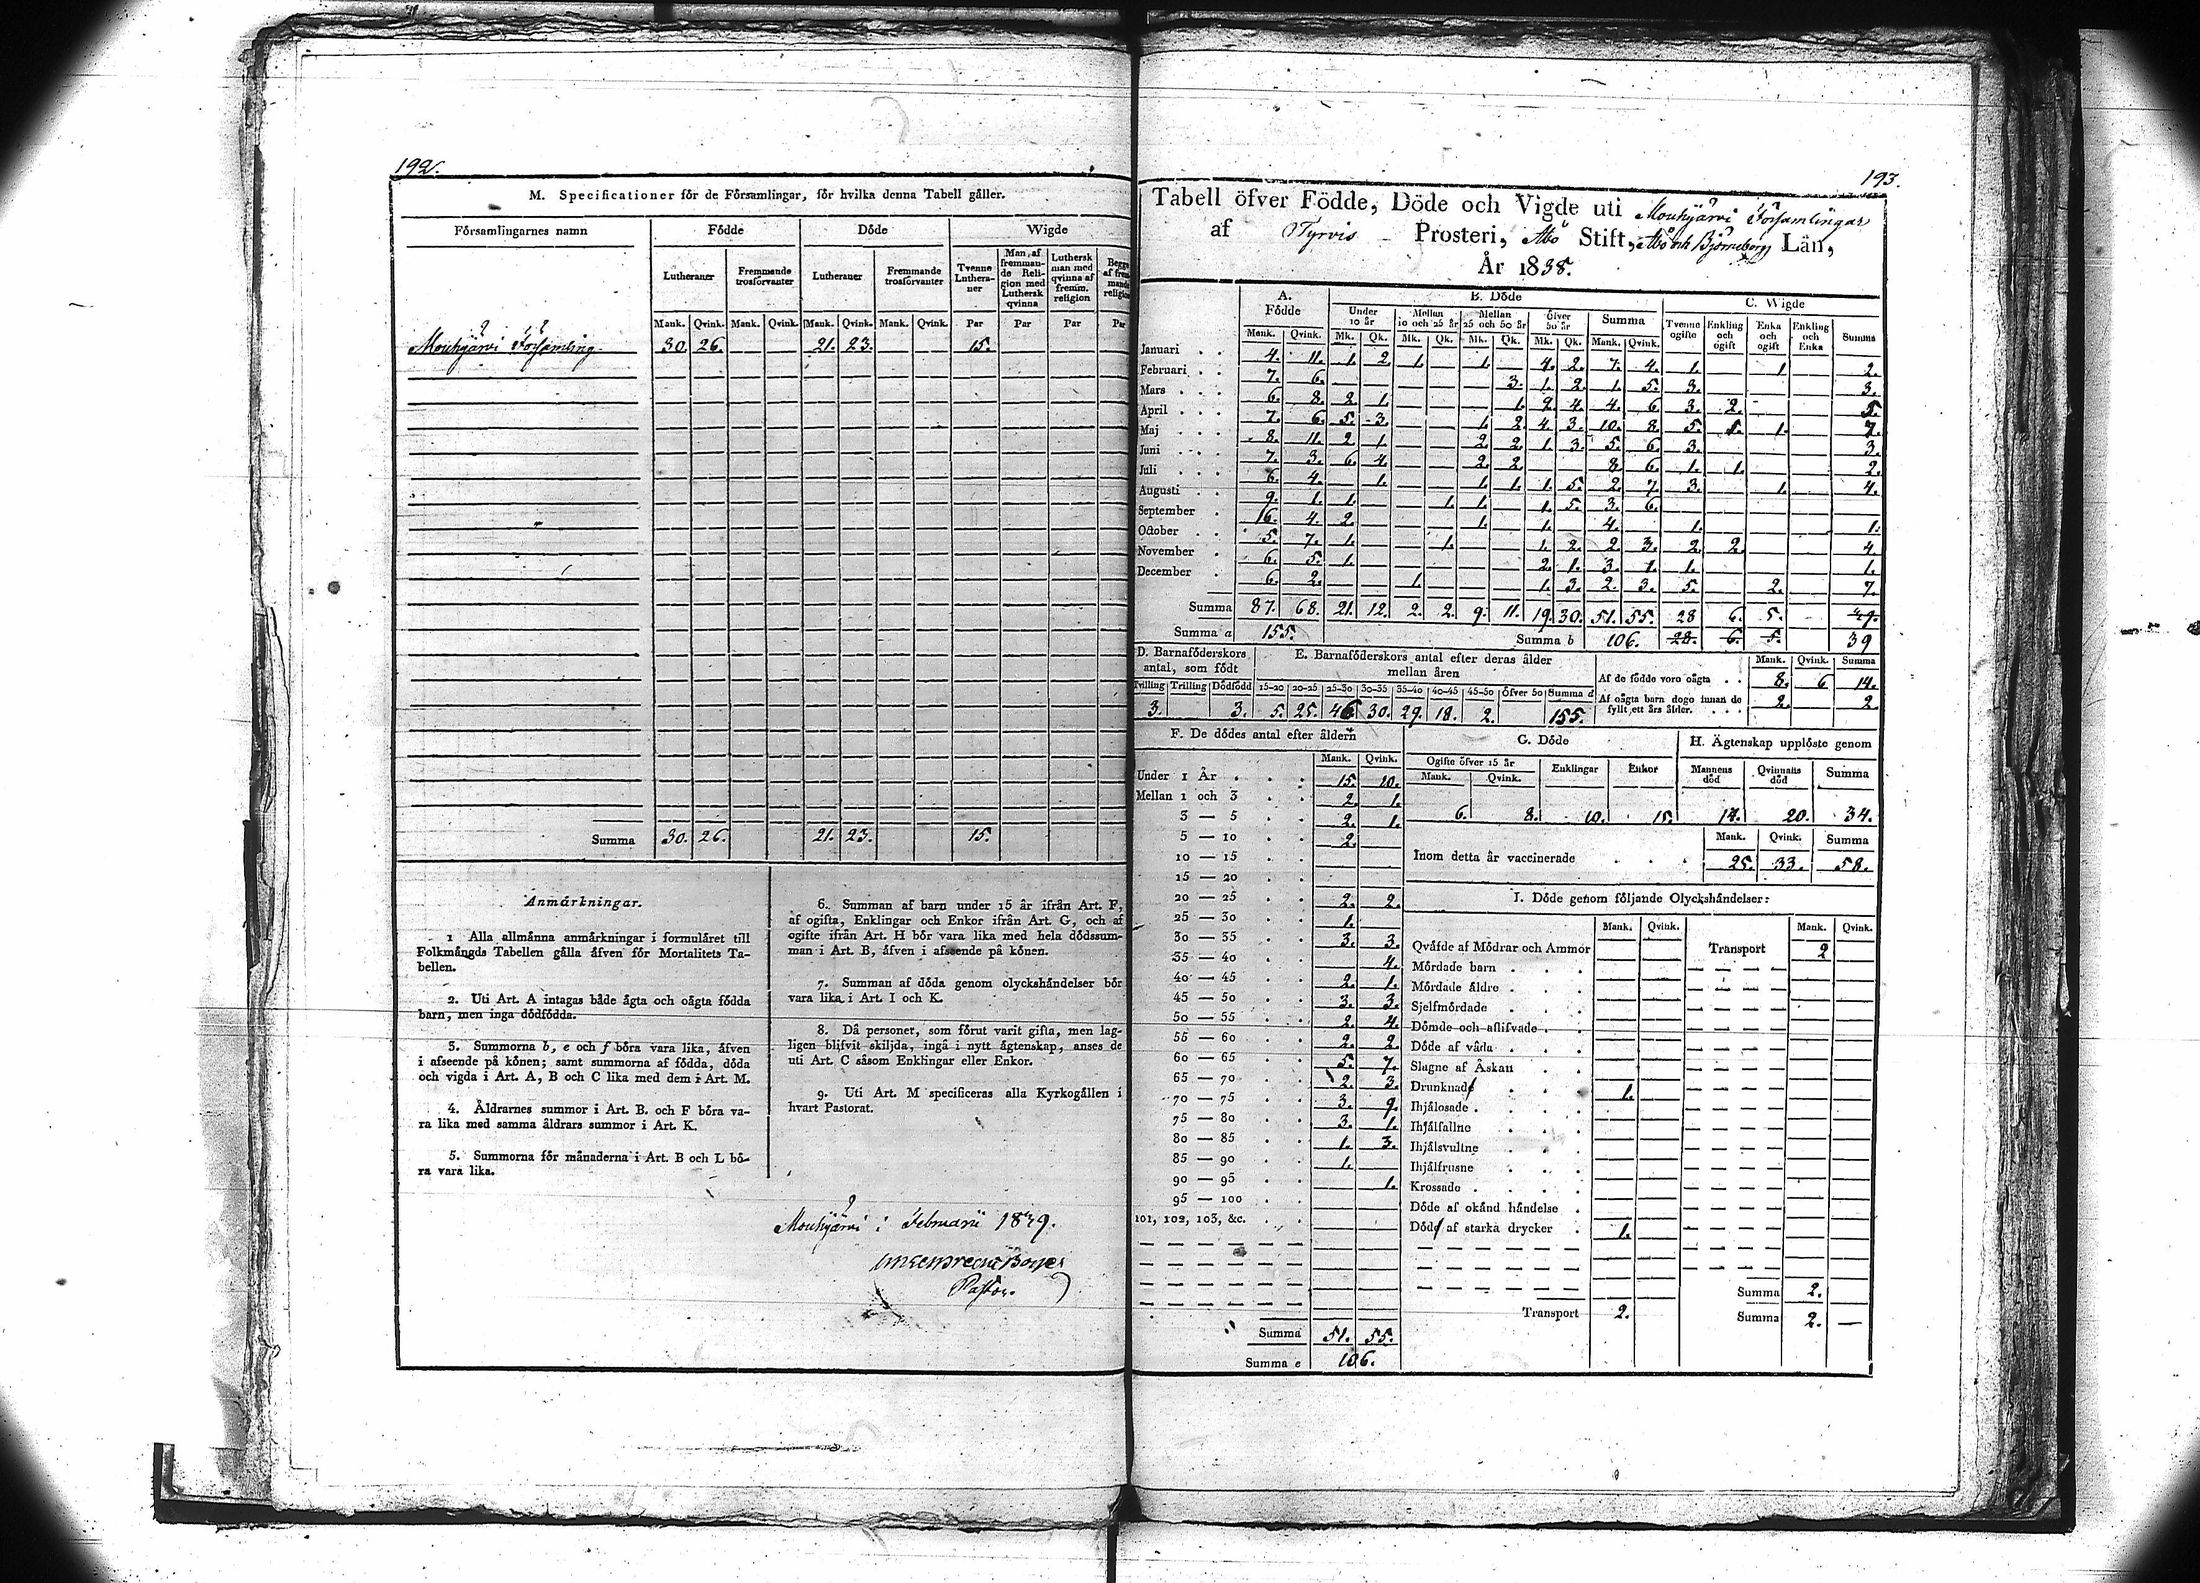 192.
M. Specificationer för de Församlingar, för hvilka denna Tabell gäller.
Församlingarnes namn Födde Döde Wigde
Lutheraner Fremmande trosförvanter Lutheraner Fremmande trosförvanter Tvenne Lutheraner Man af fremmande Religion med Luthersk qvinna Luthersk man med qvinna af fremm. religion Begge af fremmande religion
Mank. Qvink. Mank. Qvink. Mank. Qvink. Mank. Qvink. Par Par Par Par
Mouhijärvi Församling 30. 26. 21. 23. 15.
Summa 30. 26. 21. 23. 15.
Anmärkningar.
1 Alla allmänna anmärkningar i formuläret till
Folkmängds Tabellen gälla äfven för Mortalitets Ta-
bellen.
2. Uti Art. A intagas både ägta och oägta födda
barn, men inga dödfödda.
3. Summorna b, e och f böra vara lika, äfven
i afseende på könen; samt summorna af födda, döda
och vigda i Art. A, B och C lika med dem i Art. M.
4. Åldrarnes summor i Art. B. och F böra va-
ra lika med samma åldrars summor i Art. K.
5. Summorna för månaderna i Art. B och L bö-
ra vara lika.
6. Summan af barn under 15 år ifrån Art. F,
af ogifta, Enklingar och Enkor ifrån Art. G, och af
ogifte ifrån Art. H bör vara lika med hela dödssum-
man i Art. B, äfven i afseende på könen.
7. Summan af döda genom olyckshändelser bör
vara lika i Art. I och K.
8. Då personer, som förut varit gifta, men lag-
ligen blifvit skiljda, ingå i nytt ägtenskap, anses de
uti Art. C såsom Enklingar eller Enkor.
9. Uti Art. M specificeras alla Kyrkogällen i
hvart Pastorat.
Mouhijärvi i Februarii 1839.
Pastor.
193.
Tabell öfver Födde, Döde och Vigde uti Mouhijärvi Församlingar
af Tyrvis Prosteri, Åbo Stift, Åbo och Björneborgs Län,
År 1838.
A. Födde B. Döde C. Wigde
Under 10 år Mellan 10 och 25 år Mellan 25 och 50 år Öfver 50 år Summa Tvenne ogifte Enkling och ogift Enka och ogift Enkling och Enka Summa
Mank. Qvink. Mk. Qk. Mk. Qk. Mk. Qk. Mk. Qk. Mank. Qvink.
Januari 4. 11. 1. 2. 1. 1. 4. 2. 7. 4. 1. 1. 2.
Februari 7. 6. 3. 1. 2. 1. 5. 3. 3.
Mars 6. 8. 2. 1. 1. 2. 4. 4. 6. 3. 2. 5.
April 7. 6. 5. 3. 1. 2. 4. 3. 10. 8. 5. 1. 1. 7.
Maj 8. 11. 2. 1. 2. 2. 1. 3. 5. 6. 3. 3.
Juni 7. 3. 6. 4. 2. 2. 8. 6. 1. 1. 2.
Juli 6. 4. 1. 1. 1. 1. 5. 2. 7. 3. 1. 4.
Augusti 9. 1. 1. 1. 1. 1. 5. 3. 6.
September 16. 4. 2. 1. 1. 4. 1. 1.
October 5. 7. 1. 1. 1. 2. 2. 3. 2. 2. 4.
November 6. 5. 1. 2. 1. 3. 1. 1. 1.
December 6. 2. 1. 1. 3. 2. 3. 5. 2. 7.
Summa 87. 68. 21. 12. 2. 2. 9. 11. 19. 30. 51. 55. 28 6. 5.
Summa a 155. Summa b 106. 28. 6. 5. 39
D. Barnaföderskors antal, som födt
Tvilling Trilling Dödfödd
3. 3.
E. Barnaföderskors antal efter deras ålder
mellan åren
15-20 20-25 25-30 30-35 35-40 40-45 45-50 Öfver 50 Summa d
5. 25. 46. 30. 29. 18. 2. 155.
Mank. Qvink. Summa
Af de födde voro oägta 8. 6 14.
Af oägta barn dogo innan de
fyllt ett års ålder. 2. 2
F. De dödes antal efter åldern
Mank. Qvink.
Under 1 År 15. 10.
Mellan 1 och 3 2. 1.
3 — 5 2. 1.
5 — 10 2.
10 — 15
15 — 20
20 — 25 2. 2.
25 — 30 1.
30 — 35 3. 3.
35 — 40 4.
40 — 45 2. 1.
45 — 50 3. 3.
50 — 55 2. 4.
55 — 60 2. 2.
60 — 65 5. 7.
65 — 70 2. 3.
70 — 75 3. 9.
75 — 80 3. 1.
80 — 85 1. 3.
85 — 90 1.
90 — 95 1.
95 — 100
101, 102, 103, &c.
Summa 51. 55.
Summa e 106.
G. Döde
Ogifte öfver 15 år Enklingar Enkor
Mank. Qvink.
6. 8. 10. 15.
H. Ägtenskap upplöste genom
Mannens död Qvinnans död Summa
14. 20. 34.
Mank. Qvink. Summa
Inom detta år vaccinerade 25. 33. 58.
I. Döde genom följande Olyckshändelser:
Mank. Qvink. Mank. Qvink.
Qväfde af Mödrar och Ammor Transport 2
Mördade barn
Mördade äldre
Sjelfmördade
Dömde och aflifvade
Döde af våda
Slagne af Åskan
Drunknade 1.
Ihjälosade
Ihjälfallne
Ihjälsvultne
Ihjälfrusne
Krossade
Döde af okänd händelse
Döde af starka drycker 1.
Summa 2.
Transport 2. Summa 2. —